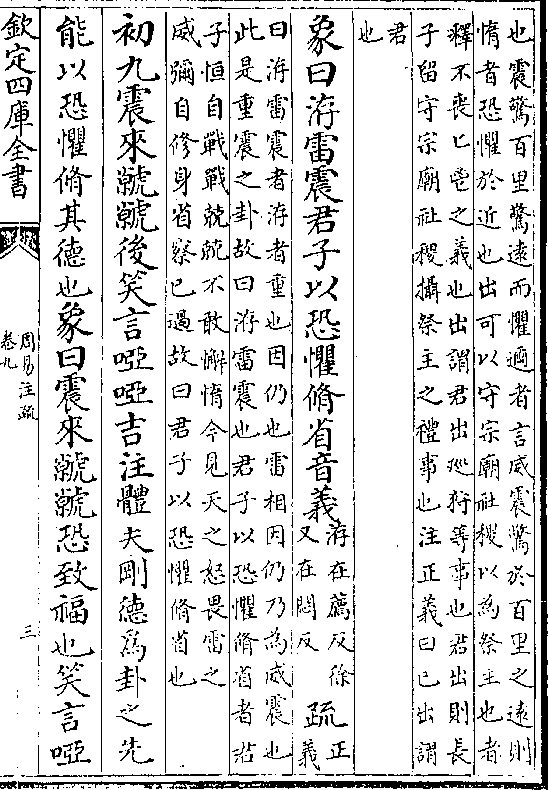 也震驚百里驚遠而懼邇者言威震驚於百里之遠則
惰者恐懼於近也出可以守宗廟社稷以為祭主也者
釋不喪匕鬯之義也出謂君出巡狩等事也君出則長
子留守宗廟社稷攝祭主之禮事也注正義曰已出謂
君
也
象曰洊雷震君子以恐懼脩省音義洊在薦反徐
又在悶反
疏正
義
曰洊雷震者洊者重也因仍也雷相因仍乃為威震也
此是重震之卦故曰洊雷震也君子以恐懼脩省者君
子恒自戰戰兢兢不敢懈惰今見天之怒畏雷之
威彌自修身省察已過故曰君子以恐懼脩省也
初九震來虩虩後笑言啞啞吉注體夫剛德為卦之先
能以恐懼脩其德也象曰震來虩虩恐致福也笑言啞
欽定四庫全書
周易注疏
卷九
三